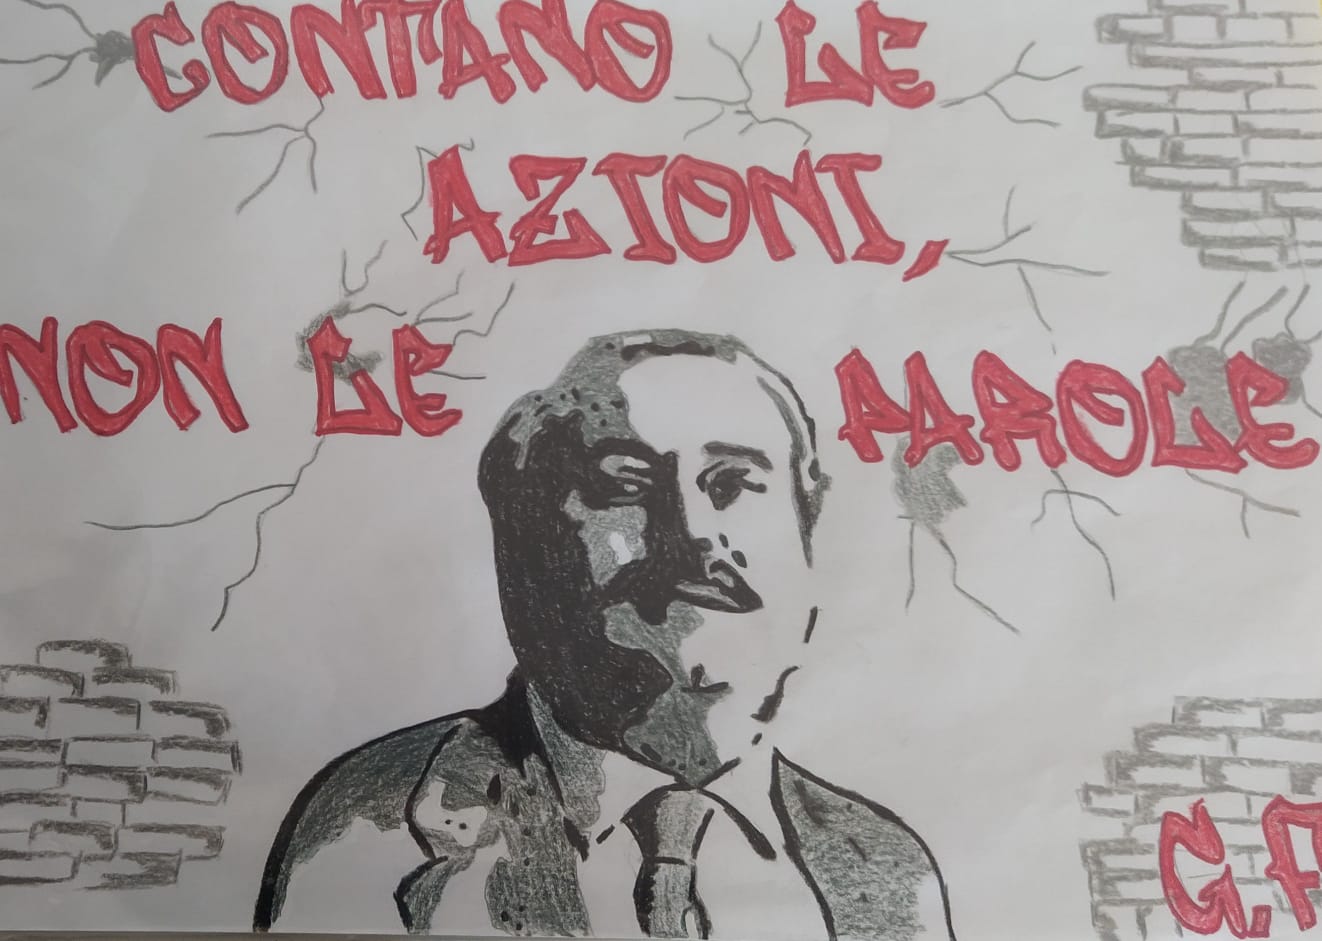 CONTANO LE
AZIONI,
NON LE PAROLE
G.F